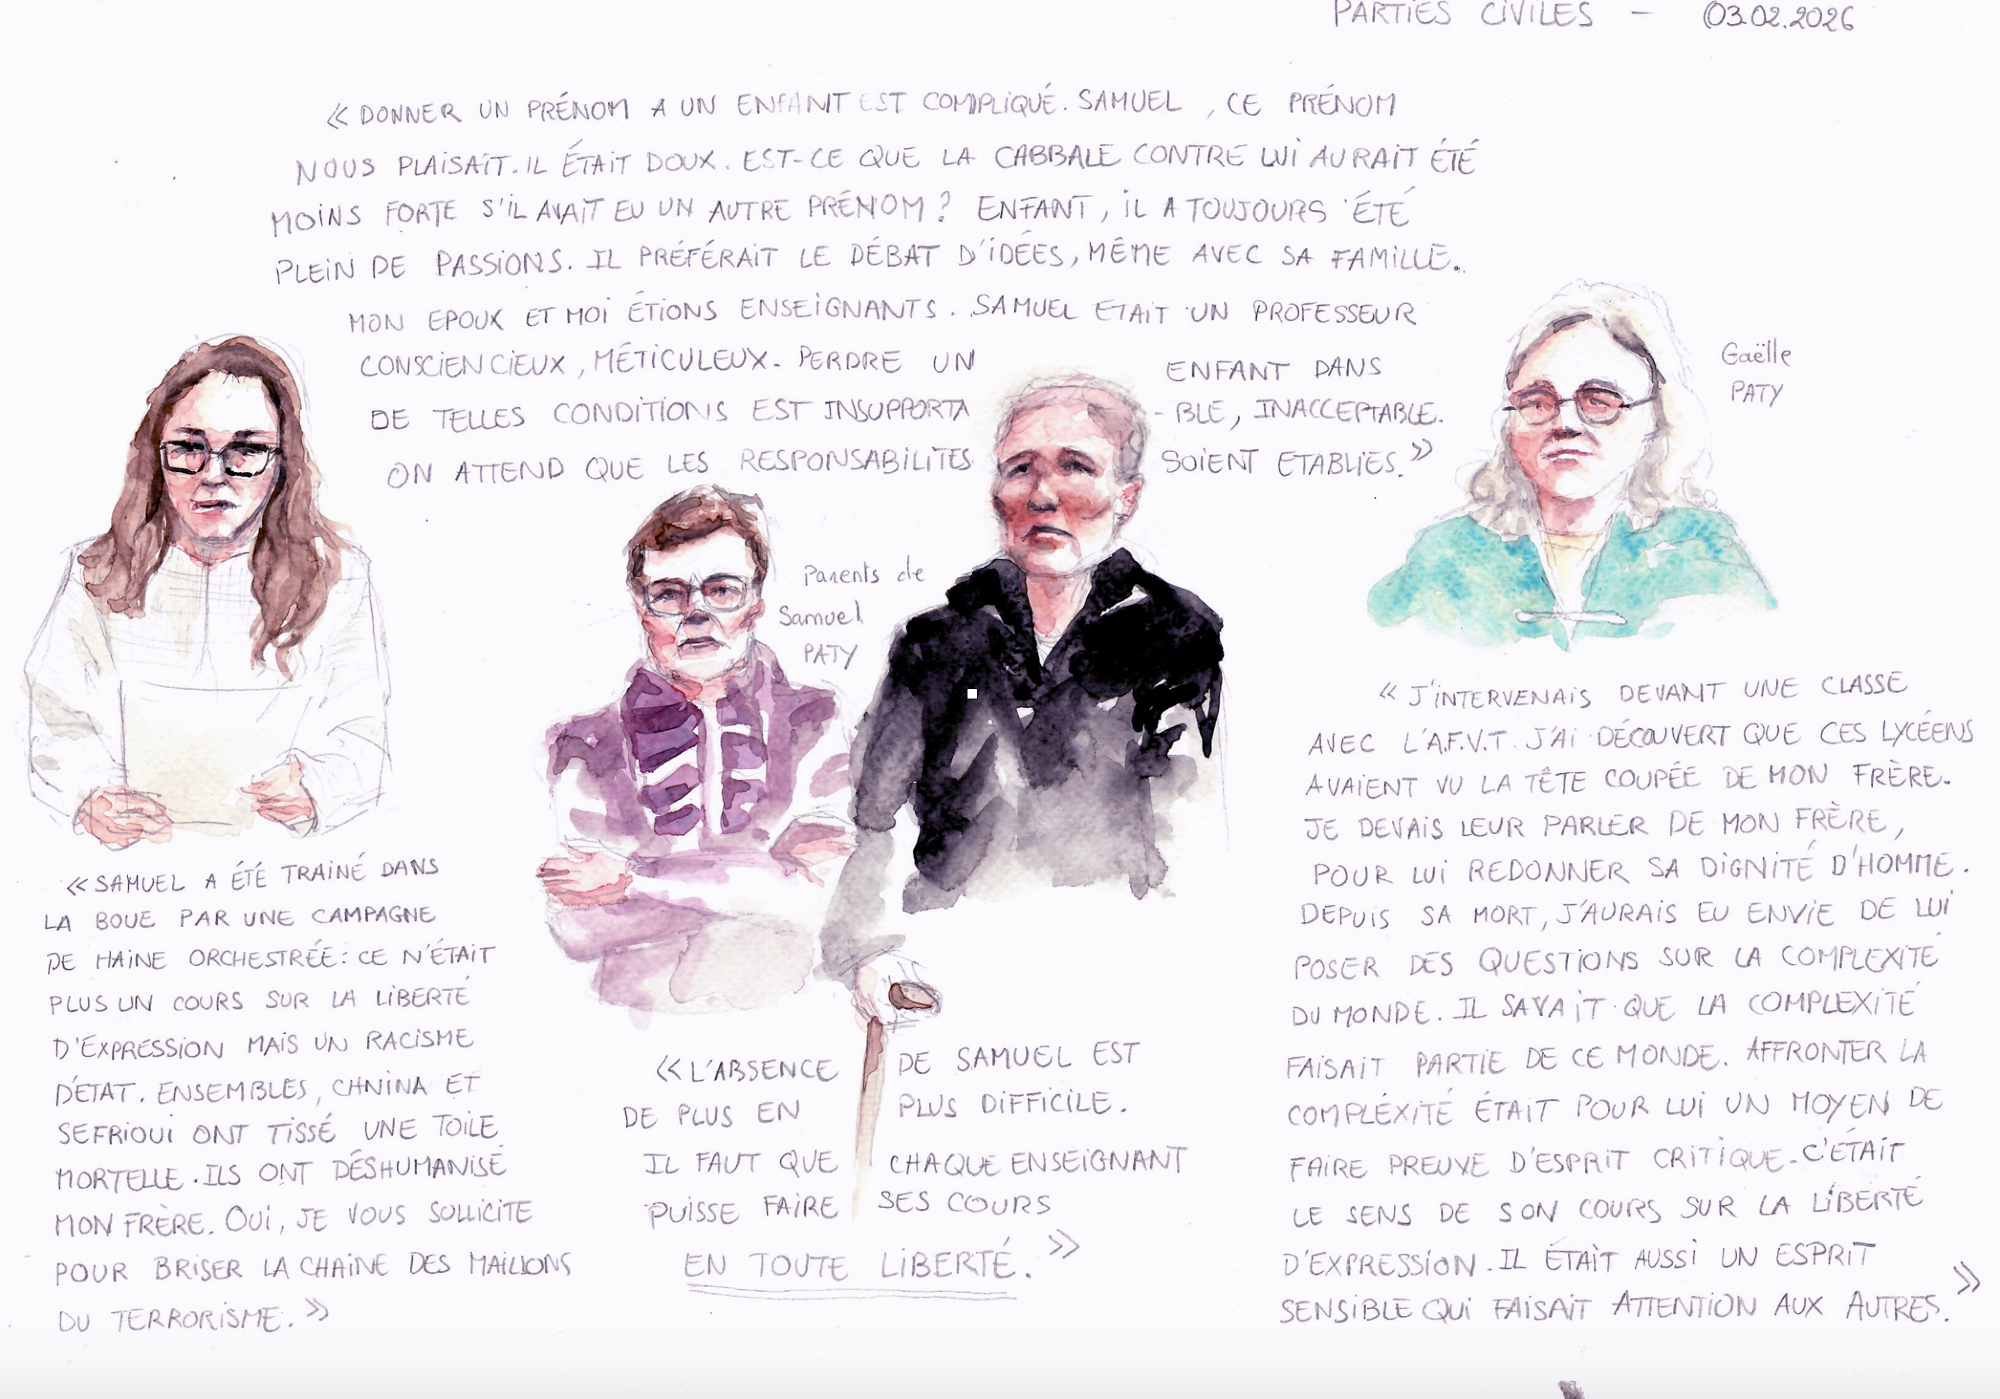 PARTIES CIVILES - 03.02.2026
« DONNER UN PRÉNOM A UN ENFANT EST COMPLIQUÉ. SAMUEL, CE PRÉNOM
NOUS PLAISAIT. IL ÉTAIT DOUX. EST-CE QUE LA CABBALE CONTRE LUI AURAIT ÉTÉ
MOINS FORTE S'IL AVAIT EU UN AUTRE PRÉNOM ? ENFANT, IL A TOUJOURS ÉTÉ
PLEIN DE PASSIONS. IL PRÉFÉRAIT LE DÉBAT D'IDÉES, MÊME AVEC SA FAMILLE.
MON EPOUX ET MOI ÉTIONS ENSEIGNANTS. SAMUEL ETAIT UN PROFESSEUR
CONSCIENCIEUX, MÉTICULEUX. PERDRE UN ENFANT DANS
DE TELLES CONDITIONS EST INSUPPORTA-BLE, INACCEPTABLE.
ON ATTEND QUE LES RESPONSABILITES SOIENT ETABLIES. »
Gaëlle
PATY
Parents de
Samuel
PATY
« SAMUEL A ÉTÉ TRAINÉ DANS
LA BOUE PAR UNE CAMPAGNE
DE HAINE ORCHESTRÉE : CE N'ÉTAIT
PLUS UN COURS SUR LA LIBERTÉ
D'EXPRESSION MAIS UN RACISME
D'ETAT. ENSEMBLES, CHNINA ET
SEFRIOUI ONT TISSÉ UNE TOILE
MORTELLE. ILS ONT DÉSHUMANISÉ
MON FRÈRE. OUI, JE VOUS SOLLICITE
POUR BRISER LA CHAINE DES MAILLONS
DU TERRORISME. »
« L'ABSENCE DE SAMUEL EST
DE PLUS EN PLUS DIFFICILE.
IL FAUT QUE CHAQUE ENSEIGNANT
PUISSE FAIRE SES COURS
EN TOUTE LIBERTÉ. »
« J'INTERVENAIS DEVANT UNE CLASSE
AVEC L'A.F.V.T. J'AI DÉCOUVERT QUE CES LYCÉENS
AVAIENT VU LA TÊTE COUPÉE DE MON FRÈRE.
JE DEVAIS LEUR PARLER DE MON FRÈRE,
POUR LUI REDONNER SA DIGNITÉ D'HOMME.
DEPUIS SA MORT, J'AURAIS EU ENVIE DE LUI
POSER DES QUESTIONS SUR LA COMPLEXITÉ
DU MONDE. IL SAVAIT QUE LA COMPLEXITÉ
FAISAIT PARTIE DE CE MONDE. AFFRONTER LA
COMPLÉXITÉ ÉTAIT POUR LUI UN MOYEN DE
FAIRE PREUVE D'ESPRIT CRITIQUE. C'ÉTAIT
LE SENS DE SON COURS SUR LA LIBERTÉ
D'EXPRESSION. IL ÉTAIT AUSSI UN ESPRIT
SENSIBLE QUI FAISAIT ATTENTION AUX AUTRES. »